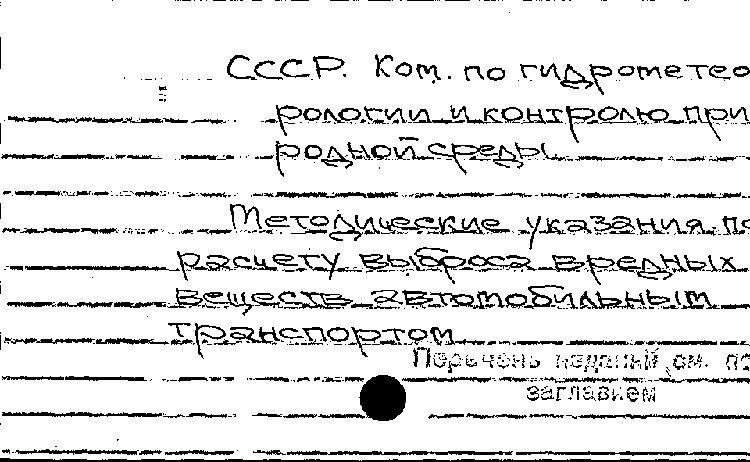 СССР. Ком. по гидрометео
рологии и контролю при
родной среды.
Методические указания по
расчету выброса вредных
веществ автомобильным
транспортом
Перечень изданий см. по
заглавием